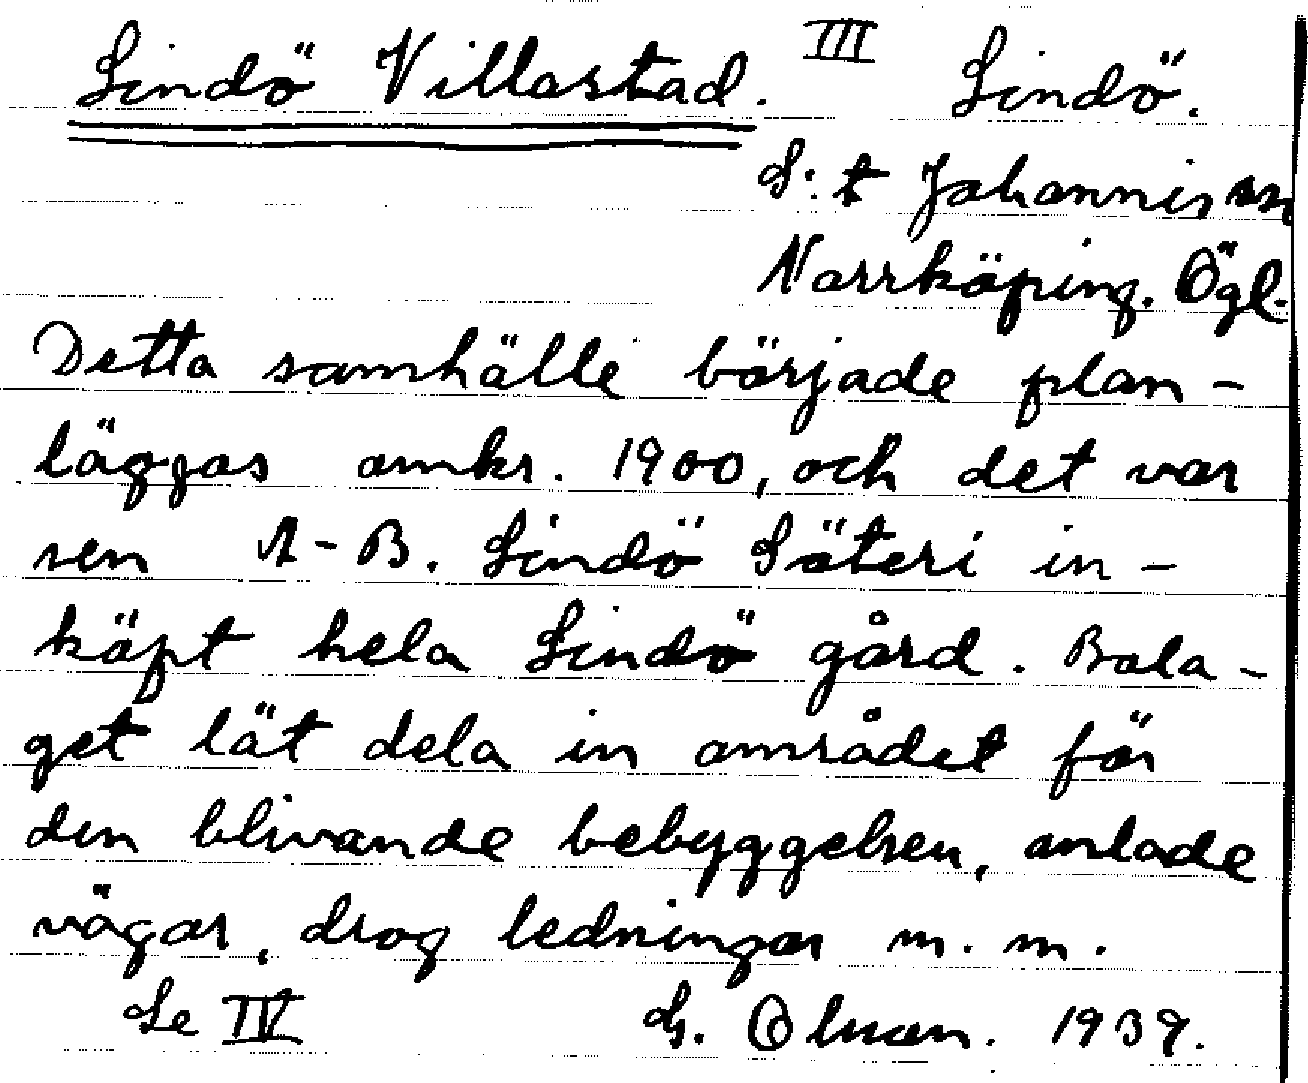 Lindö Villastad. III Lindö.
S:t Johannis sn
Norrköping. Ögl.
Detta samhälle började plan-
läggas omkr. 1900, och det var
sen A-B. Lindö Säteri in-
köpt hela Lindö gård. Bola-
get lät dela in området för
den blivande bebyggelsen, anlade
vägar, drog ledningar m. m.
Se IV G. Olson. 1939.